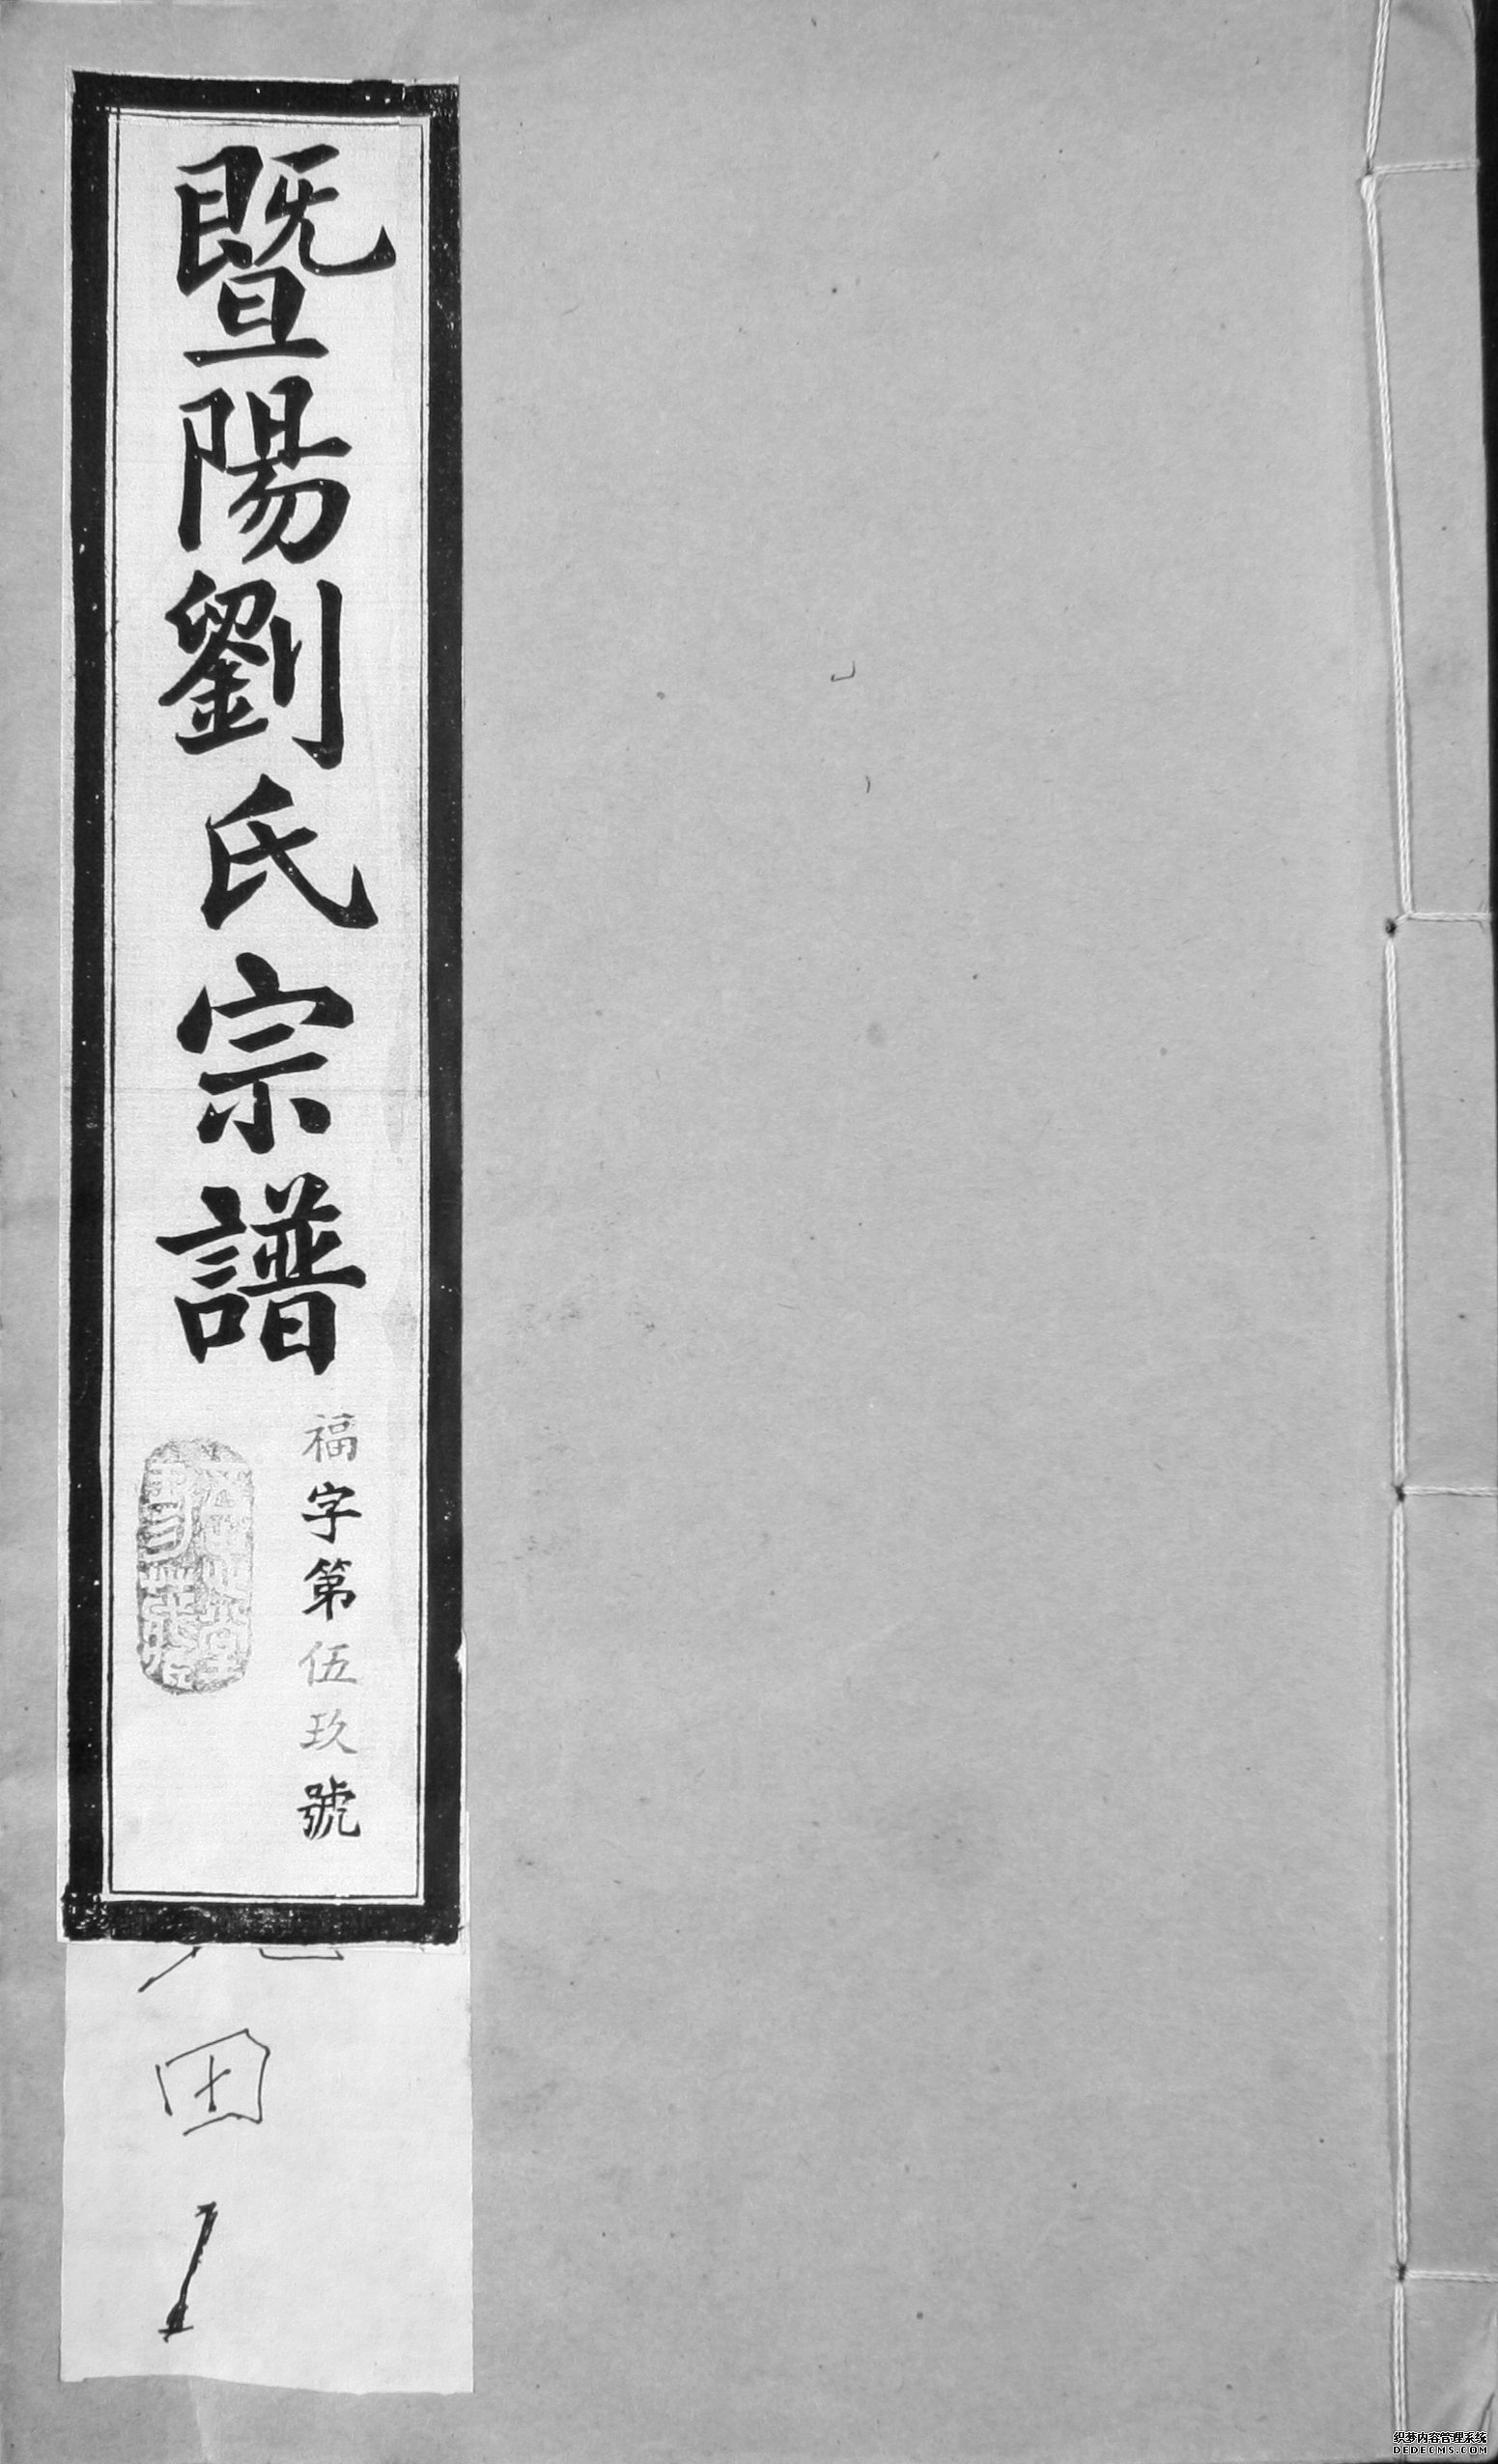 暨陽劉氏宗譜
福字第伍玖號
田
1
织梦内容管理系统
DEDECMS.COM